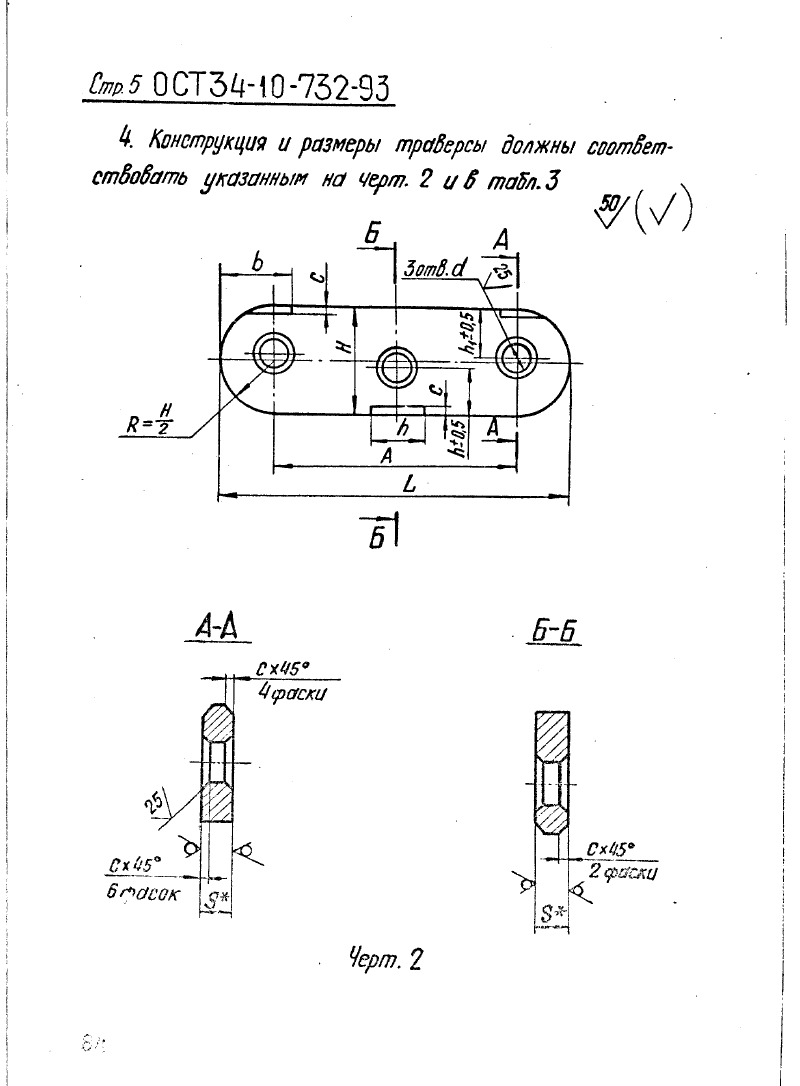 Стр. 5 ОСТ 34-10-732-93
4. Конструкция и размеры траверсы должны соответ-
ствовать указанным на черт. 2 и в табл. 3
50 (√)
Б
А
b
c
3 отв. d
25
H
h₁±0,5
c
R=H/2
h
h±0,5
А
A
L
Б
А-А
Б-Б
c×45°
4 фаски
25
c×45°
6 фасок
S*
c×45°
2 фаски
S*
Черт. 2